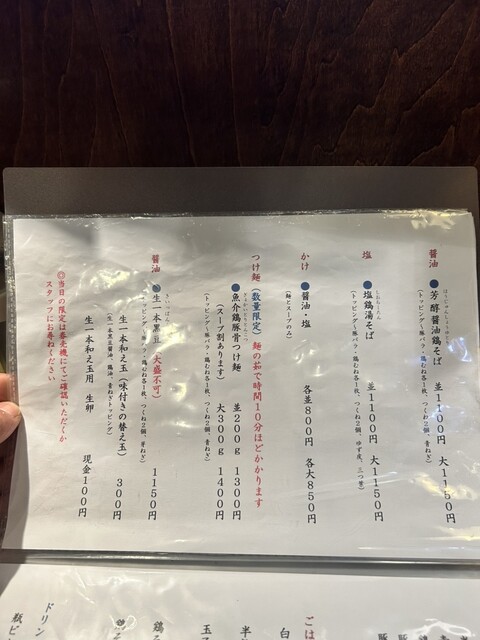 醤油
●芳醇醤油鶏そば 並1100円 大1150円
(トッピング〜豚バラ・鶏むね各1枚、つくね2個、青ねぎ)
塩
●塩鶏湯そば 並1100円 大1150円
(トッピング〜豚バラ・鶏むね各1枚、つくね2個、ゆず皮、三つ葉)
かけ
●醤油・塩 各並800円 各大850円
(麺とスープのみ)
つけ麺(数量限定)麺の茹で時間10分ほどかかります
●魚介鶏豚骨つけ麺 並200g 1300円
(スープ割あります) 大300g 1400円
(トッピング〜豚バラ・鶏むね各1枚、つくね2個、青ねぎ)
醤油
●生一本黒豆(大盛不可) 1150円
(トッピング〜豚バラ・鶏むね各1枚、つくね2個、芽ねぎ)
生一本和え玉(味付きの替え玉) 300円
(生一本黒豆醤油、鶏油、青ねぎトッピング)
生一本和え玉用 生卵 現金100円
◎当日の限定は券売機にてご確認いただくか
スタッフにお尋ねください
ごは
白
半
玉子
鶏
ドリン
瓶ビ